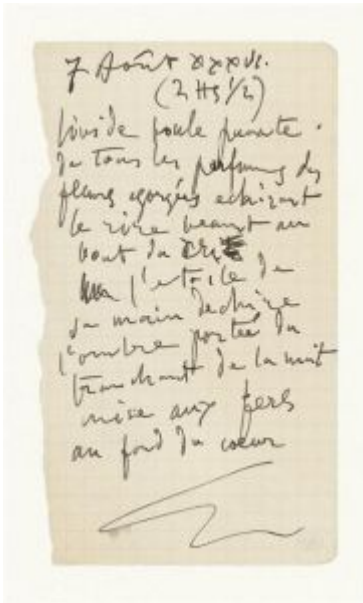 7 Août XXXVI.
(2 HS 1/2)
poule puante
de tous les parfums des
fleurs egorgées eclairant
le rire beant au
bout du cri
l'etoile de
sa main dechire
l'ombre portée du
tranchant de la nuit
mise aux fers
au fond du coeur